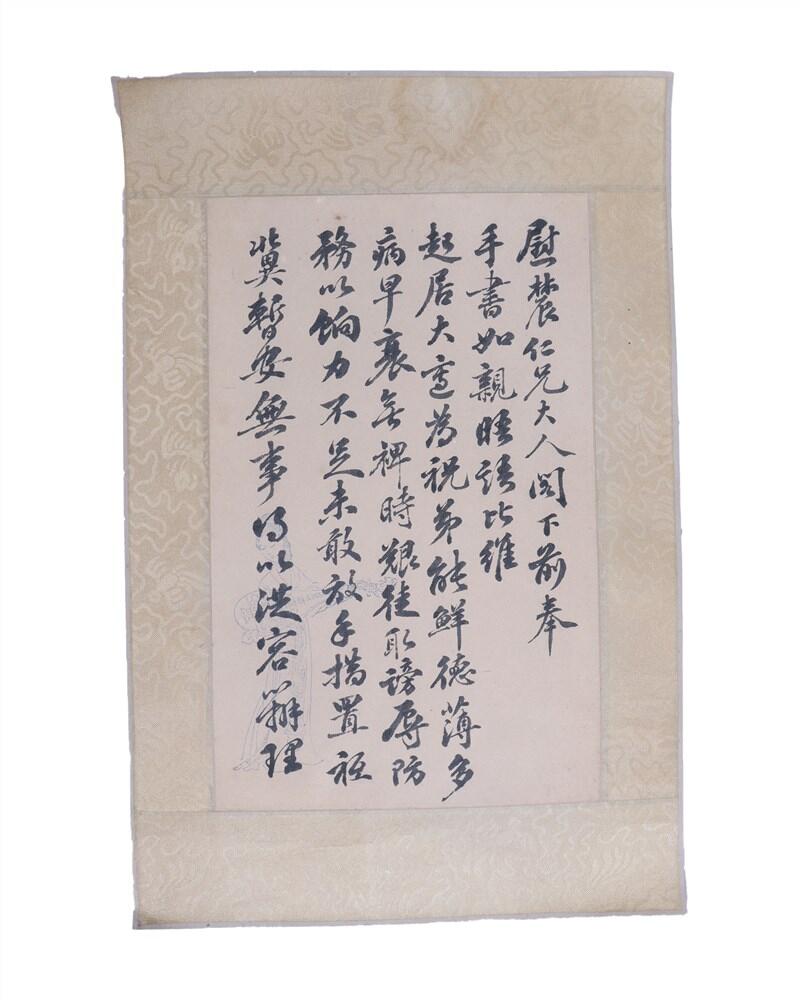 慰農仁兄大人閣下前奉
手書如親晤語比維
起居大適為祝弟能鮮德薄多
病早衰無裨時艱徒取謗辱防
務以餉力不足未敢放手措置祗
冀暫安無事得以從容辦理